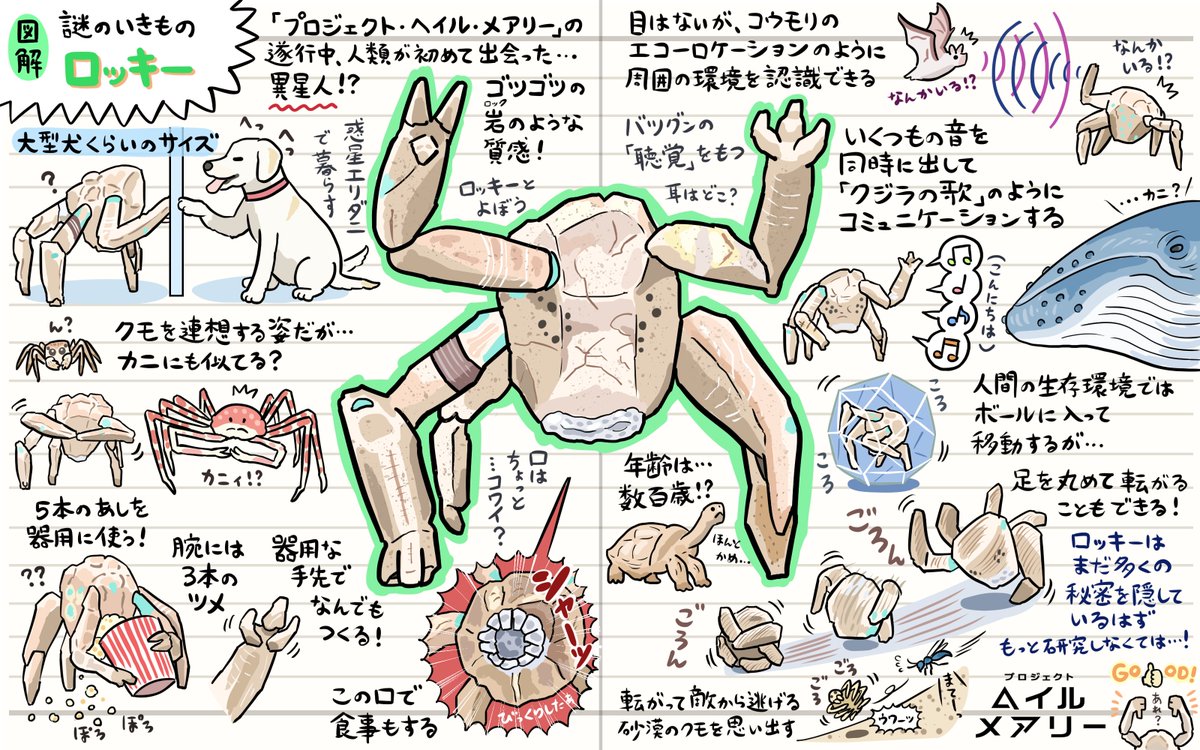 図解
謎のいきもの
ロッキー
「プロジェクト・ヘイル・メアリー」の
遂行中、人類が初めて出会った…
異星人!?
大型犬くらいのサイズ
?
へっ
へっ
惑星エリダニ
で暮らす
ゴツゴツの
ロック
岩のような
質感！
ロッキーと
よぼう
ん?
クモを連想する姿だが…
カニにも似てる？
カニィ!?
5本のあしを
器用に使う！
??
ぽろ
ぽろ
腕には
3本の
ツメ
器用な
手先で
なんでも
つくる！
口は
ちょっと
…コワイ？
シャーッ
びっくりしたぁ
この口で
食事もする
目はないが、コウモリの
エコーロケーションのように
周囲の環境を認識できる
なんかいる!?
なんか
いる!?
バツグンの
「聴覚」をもつ
耳はどこ？
いくつもの音を
同時に出して
「クジラの歌」のように
コミュニケーションする
…カニ？
(こんにちは)
人間の生存環境では
ボールに入って
移動するが…
ころ
ころ
年齢は…
数百歳!?
ほんと
かめ…
足を丸めて転がる
こともできる！
ごろん
ごろん
ロッキーは
まだ多くの
秘密を隠して
いるはず
もっと研究しなくては…！
転がって敵から逃げる
砂漠のクモを思い出す
ごろ
ごろ
ウフーッ
まてー
プロジェクト
ヘイル
メアリー
GOOD!
あれ？